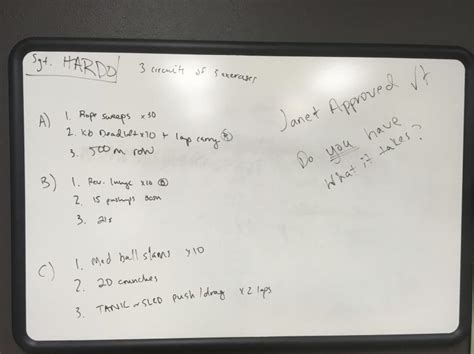 Sgt. HARDO
3 circuits of 3 exercises
A) 1. Rope sweeps x30
2. KB Deadlift x10 + lap carry
3. 500 m row
B) 1. Rev. lunge x10
2. 15 pushups
3. 21s
C) 1. Med ball slams x10
2. 20 crunches
3. TANK SLED push/drag x2 laps
Janet Approved
Do you have
What it takes?